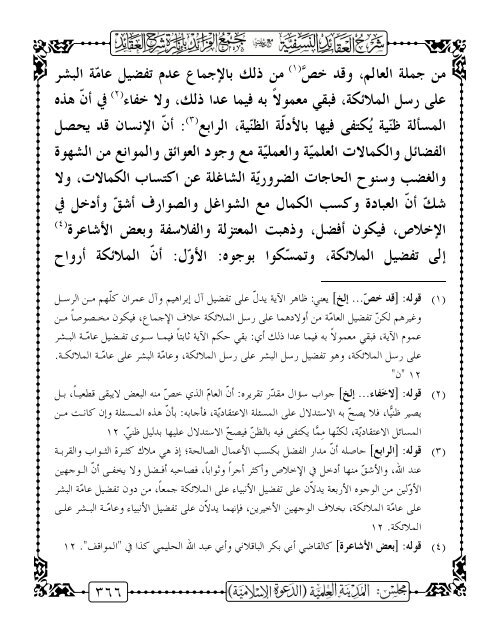 شرح العقائد النسفية مع جمع الفرائد بإنارة شرح العقائد
من جملة العالم، وقد خصّ(١) من ذلك بالإجماع عدم تفضيل عامّة البشر
على رسل الملائكة، فبقي معمولاً به فيما عدا ذلك، ولا خفاء(٢) في أنّ هذه
المسألة ظنّية يُكتفى فيها بالأدلّة الظنّية، الرابع(٣): أنّ الإنسان قد يحصل
الفضائل والكمالات العلميّة والعمليّة مع وجود العوائق والموانع من الشهوة
والغضب وسنوح الحاجات الضروريّة الشاغلة عن اكتساب الكمالات، ولا
شكّ أنّ العبادة وكسب الكمال مع الشواغل والصوارف أشقّ وأدخل في
الإخلاص، فيكون أفضل، وذهبت المعتزلة والفلاسفة وبعض الأشاعرة(٤)
إلى تفضيل الملائكة، وتمسّكوا بوجوه: الأوّل: أنّ الملائكة أرواح
(١) قوله: [قد خصّ... إلخ] يعني: ظاهر الآية يدلّ على تفضيل آل إبراهيم وآل عمران كلّهم من الرسل
وغيرهم لكنّ تفضيل العامّة من أولادهما على رسل الملائكة خلاف الإجماع، فيكون مخصوصاً من
عموم الآية، فبقي معمولاً به فيما عدا ذلك أي: بقي حكم الآية ثابتاً فيما سوى تفضيل عامّة البشر
على رسل الملائكة، وهو تفضيل رسل البشر على رسل الملائكة، وعامّة البشر على عامّة الملائكة.
١٢ "ن"
(٢) قوله: [لاخفاء... إلخ] جواب سؤال مقدّر تقريره: أنّ العامّ الذي خصّ منه البعض لايبقى قطعياً، بل
يصير ظنًّيا، فلا يصحّ به الاستدلال على المسئلة الاعتقاديّة، فأجابه: بأن هذه المسئلة وإن كانت من
المسائل الاعتقاديّة، لكنّها ممّا يكتفى فيه بالظنّ فيصحّ الاستدلال عليها بدليل ظنّي. ١٢
(٣) قوله: [الرابع] حاصله أنّ مدار الفضل بكسب الأعمال الصالحة؛ إذ هي ملاك كثرة الثواب والقربة
عند الله، والأشقّ منها أدخل في الإخلاص وأكثر أجراً وثواباً، فصاحبه أفضل ولا يخفى أنّ الوجهين
الأوّلين من الوجوه الأربعة يدلّان على تفضيل الأنبياء على الملائكة جمعاً، من دون تفضيل عامّة البشر
على الملائكة، بخلاف الوجهين الأخيرين، فإنهما يدلّان على تفضيل الأنبياء وعامّة البشر على
الملائكة. ١٢
(٤) قوله: [بعض الأشاعرة] كالقاضي أبي بكر الباقلاني وأبي عبد الله الحليمي كذا في "المواقف". ١٢
مجلس: المدينة العلمية (الدعوة الإسلامية)
٣٦٦